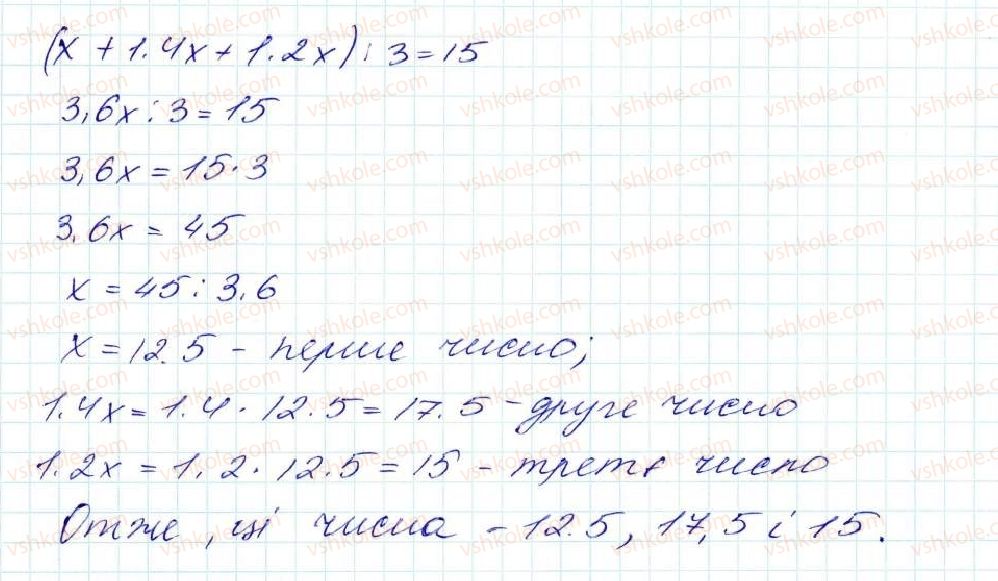 (x + 1.4x + 1.2x) : 3 = 15
3,6x : 3 = 15
3,6x = 15·3
3.6x = 45
x = 45 : 3.6
x = 12.5 - перше число;
1.4x = 1.4 · 12.5 = 17.5 - друге число
1.2x = 1.2 · 12.5 = 15 - третє число
Отже, ці числа - 12.5, 17,5 і 15.
vshkole.com